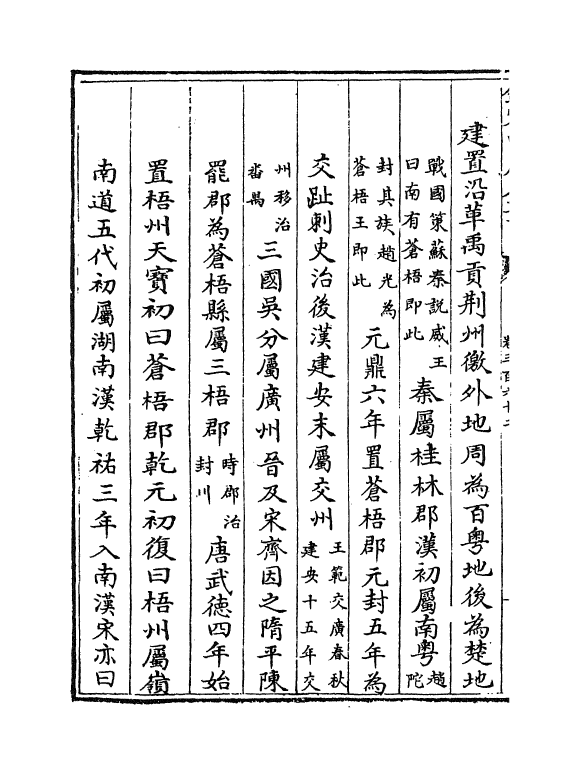 建置沿革禹貢荆州徼外地周為百粤地後為楚地
戰國策蘇秦說威王曰南有蒼梧即此秦屬桂林郡漢初屬南粤趙陀
封其族趙光為蒼梧王即此元鼎六年置蒼梧郡元封五年為
交趾刺史治後漢建安末屬交州王範交廣春秋建安十五年交
州移治番禺三國吳分屬廣州晉及宋齊因之隋平陳
罷郡為蒼梧縣屬三梧郡時郡治封川唐武德四年始
置梧州天寶初曰蒼梧郡乾元初復曰梧州屬嶺
南道五代初屬湖南漢乾祐三年入南漢宋亦曰